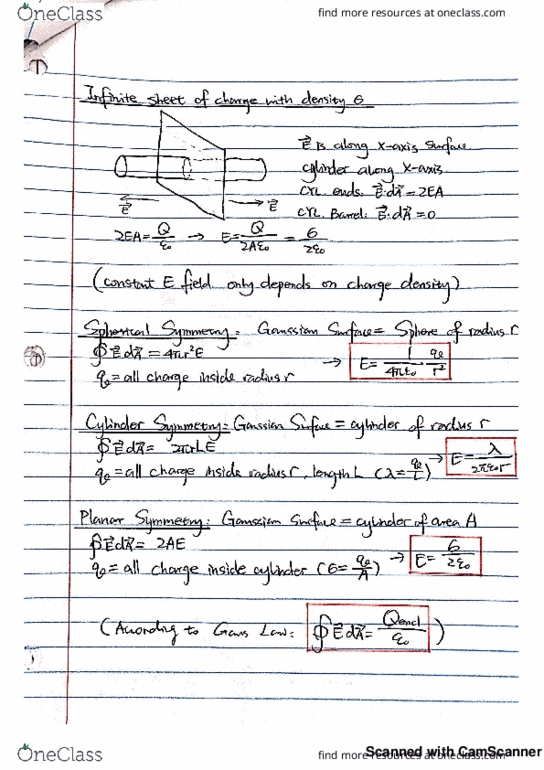 OneClass
find more resources at oneclass.com
①
Infinite sheet of charge with density 6
E⃗ is along x-axis surface
cylinder along x-axis
CYL ends: E⃗·dA⃗ = 2EA
CYL Barrel: E⃗·dA⃗ = 0
E⃗
E⃗
2EA = Q/ε₀ → E = Q/2Aε₀ = 6/2ε₀
(constant E field only depends on charge density)
Spherical Symmetry: Gaussian Surface = Sphere of radius r
∮E⃗dA⃗ = 4πr²E → E = 1/4πε₀ qe/r²
qe = all charge inside radius r
Cylinder Symmetry: Gaussian Surface = cylinder of radius r
∮E⃗dA⃗ = 2πrLE
qe = all charge inside radius r, length L (λ = qe/L) → E = λ/2πε₀r
Planar Symmetry: Gaussian Surface = cylinder of area A
∮E⃗dA⃗ = 2AE
qe = all charge inside cylinder (6 = qe/A) → E = 6/2ε₀
(According to Gauss Law: ∮E⃗dA⃗ = Qencl/ε₀)
OneClass
find more resources at oneclass.com
Scanned with CamScanner